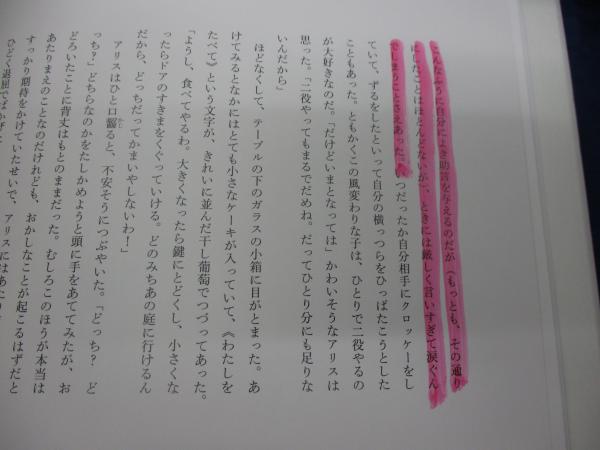 こんなふうに自分によき助言を与えるのだが（もっとも、その通り
にしたことはほとんどないが）、ときには厳しく言いすぎて涙ぐん
でしまうことさえあった。いつだったか自分相手にクロッケーをし
ていて、ずるをしたといって自分の横っつらをひっぱたこうとした
こともあった。ともかくこの風変わりな子は、ひとりで二役やるの
が大好きなのだ。「だけどいまとなっては」かわいそうなアリスは
思った。「二役やってもまるでだめね。だってひとり分にも足りな
いんだから」
ほどなくして、テーブルの下のガラスの小箱に目がとまった。あ
けてみるとなかにはとても小さなケーキが入っていて、《わたしを
たべて》という文字が、きれいに並んだ干し葡萄でつづってあった。
「ようし、食べてやるわ。大きくなったら鍵にとどくし、小さくな
ったらドアのすきまをくぐっていける。どのみちあの庭に行けるん
だから、どっちだってかまいやしないわ！」
アリスはひと口齧ると、不安そうにつぶやいた。「どっち？　ど
っち？」どちらなのかをたしかめようと頭に手をあててみたが、お
どろいたことに背丈はもとのままだった。むしろこのほうが本当は
あたりまえのことなのだけれども、おかしなことが起こるはずだと
すっかり期待をかけていたせいで、アリスにはあたり
ひどく退屈でばかげ